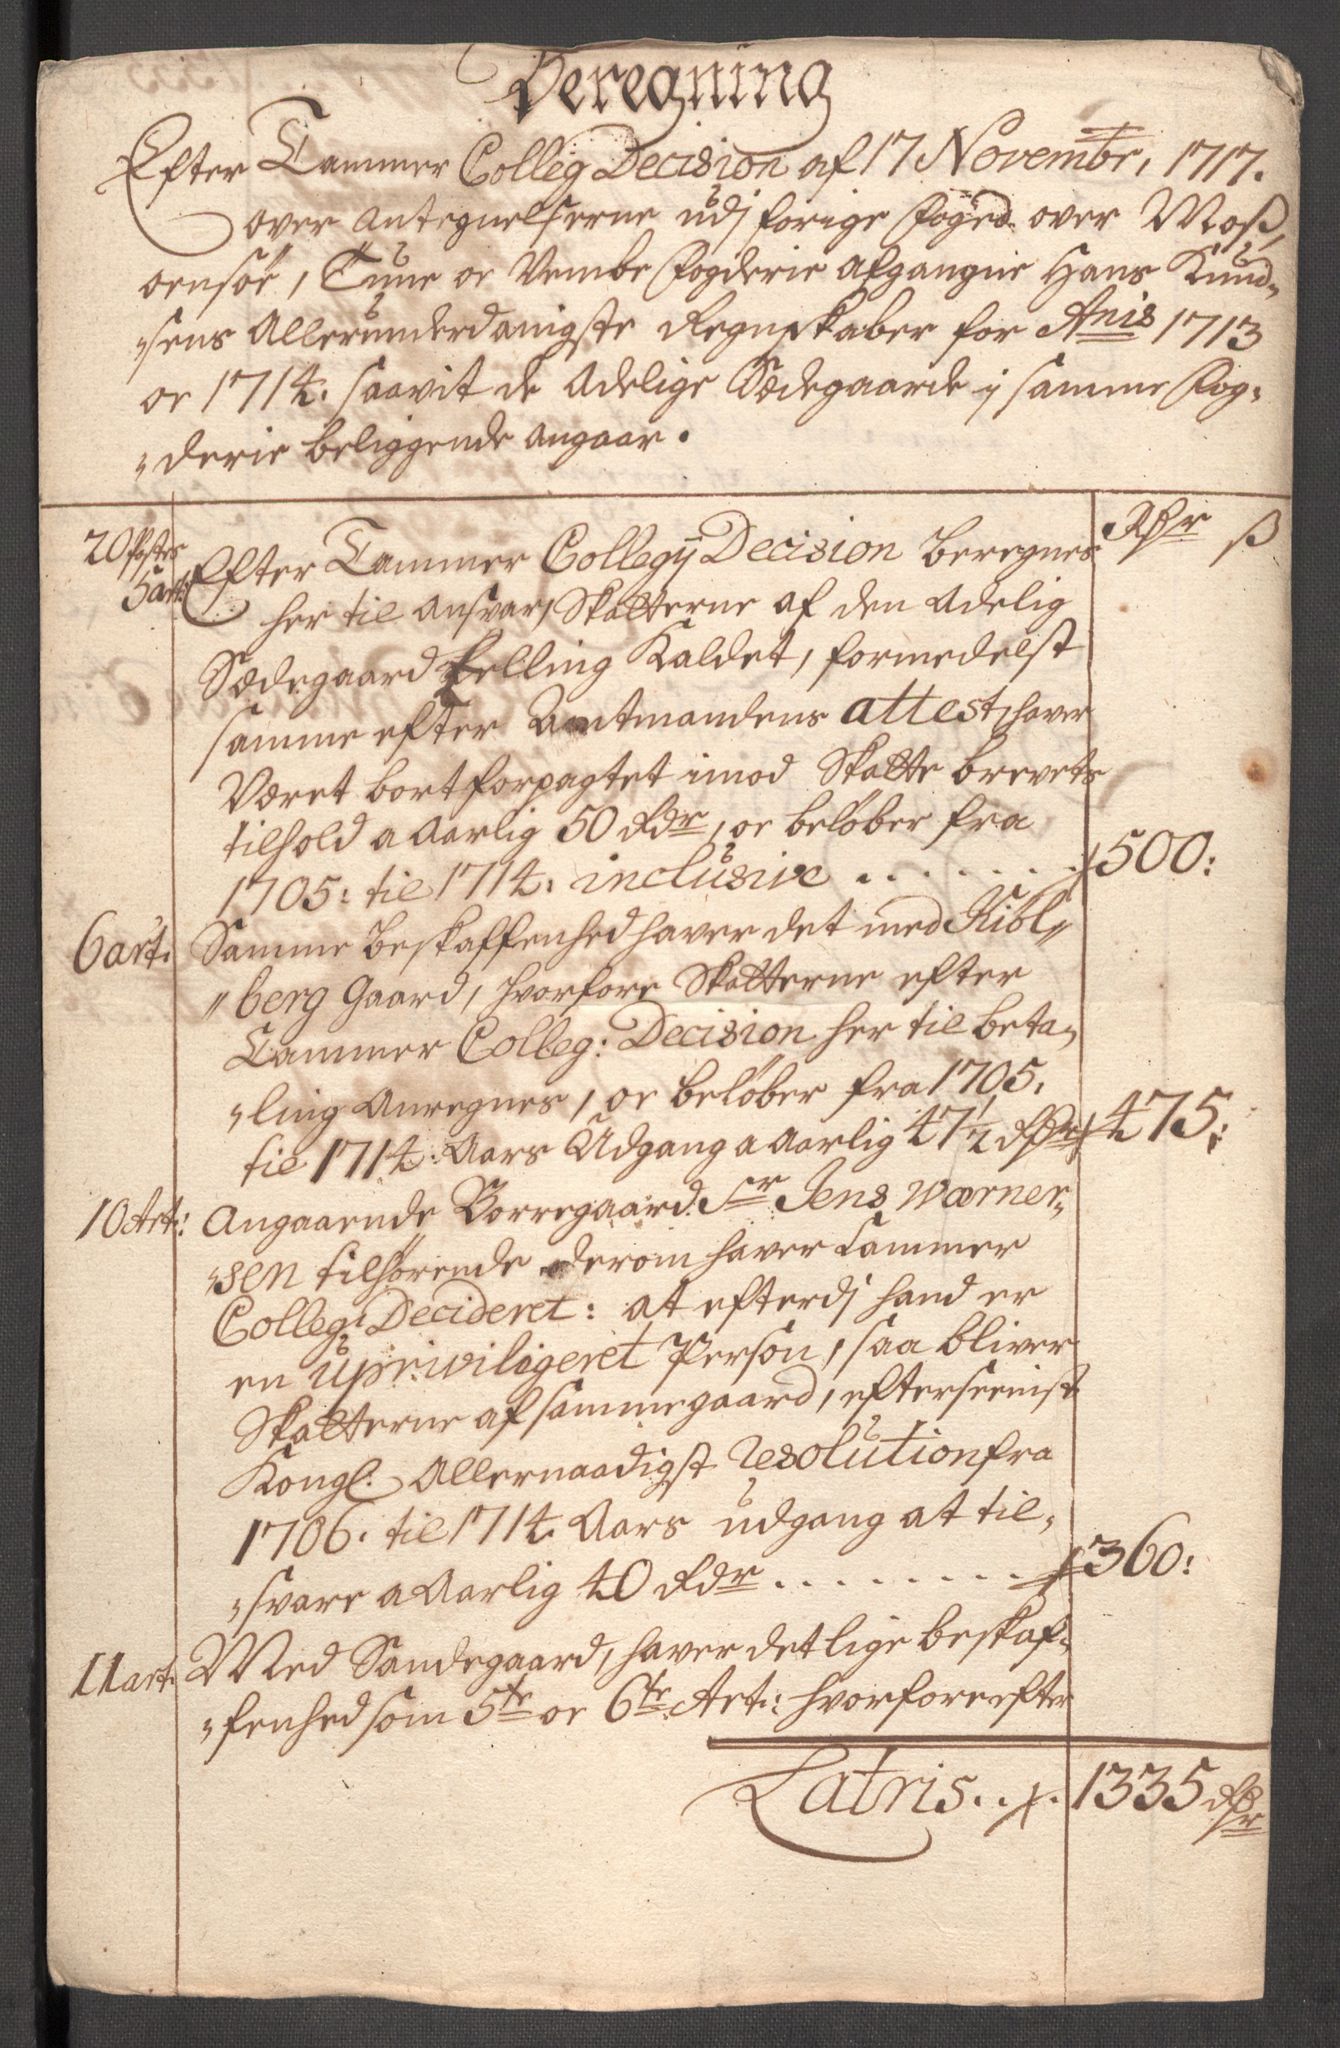 Beregning
Efter Cammer Colleg Decision af 17 Novembr, 1717.
over Antegnelserne udj forige Foged over Moss,
oensöe, Tune oc Vembe Fogderie afgangne Hans Knud-
"sens Allerunderdanigste Regnskaber for Anis 1713
oc 1714. saavit de Adelige Sædegaarde ij samme Fog-
"derie beliggende angaar.
Rdr ß
20 Postes Efter Cammer Collegij Decision Beregnes
5 art: her til Ansvar, Skatterne af den Adelig
Sædegaard Kelling Kaldet, formedelst
samme efter Amtmandens attest, haver
Været bortforpagtet imod Skatte brevets
tilhold a Aarlig 50 Rdr, oc beløber fra
1705: til 1714: inclusive . . . . . . 500:
6 art. Samme Beskaffenhed haver det med Kibl"
"berg Gaard, hvorfore Skatterne efter
Cammer Colleg: Decision her til beta-
"ling Anregnes, oc beløber fra 1705.
til 1714: Aars Udgang a Aarlig 47 1/2 Rdr 475:
10 Art: Angaaende Borregaard Sr Jens Wærner-
"sen tilhörende derom haver Cammer
Colleg: Decideret: at efterdj hand er
en upriviligeret Person, saa bliver
Skatterne af samme gaard, efter seenist
Kongl. Allernaadigst Resolution fra
1706. til 1714. Aars udgang at til-
"svare a Aarlig 40 Rdr . . . . . . . . 360:
11 art. Med Sandegaard, haver det lige beskaf-
"fenhed som 5te oc 6te Art: hvorfore efter
Latris . . 1335 Rdr